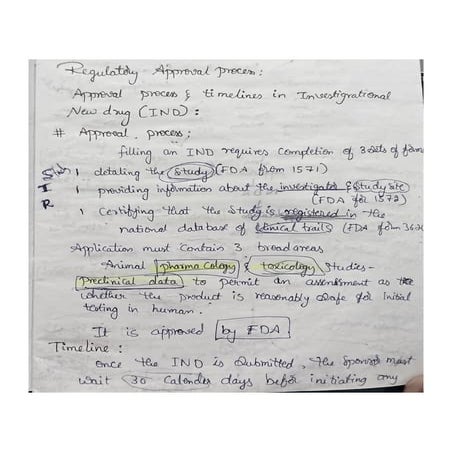 Regulatory Approval process:
Approval process & timelines in Investigational
New drug (IND):
# Approval process:
filling an IND requires completion of 3 sets of form
1 detaling the study (FDA from 1571)
1 providing information about the investigator & study site
(FDA for 1572)
1 Certifying that the study is registered in the
national database of clinical trails (FDA form 36
Application must contain 3 broad areas
Animal pharmacology & toxicology studies-
preclinical data to permit an assessment as to
whether the product is reasonably safe for initial
testing in human.
It is approved by FDA
Timeline:
once the IND is submitted, the sponsor must
wait 30 calender days befor initiating any